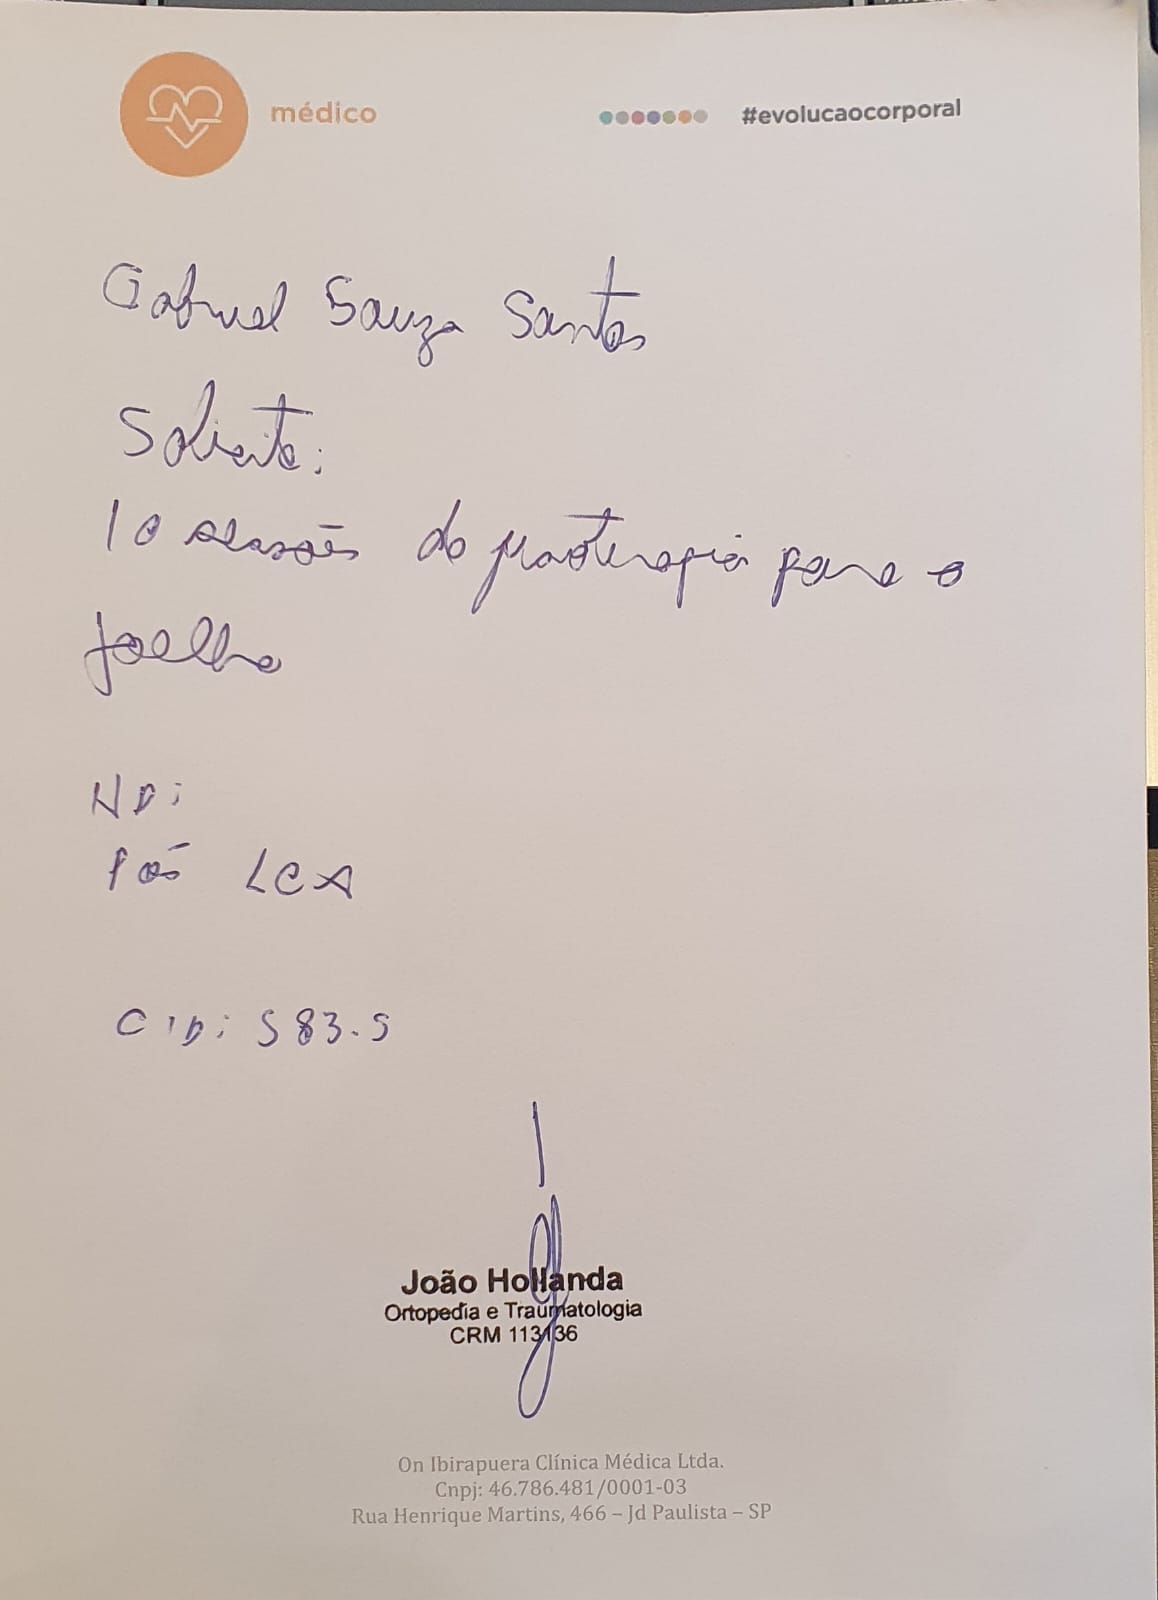 médico
#evolucaocorporal
Gabriel Souza Santos
Solicito:
10 sessões de fisioterapia para o
joelho
HD:
Pós LCA
CID: S83.5
João Hollanda
Ortopedia e Traumatologia
CRM 113136
On Ibirapuera Clínica Médica Ltda.
Cnpj: 46.786.481/0001-03
Rua Henrique Martins, 466 – Jd Paulista – SP